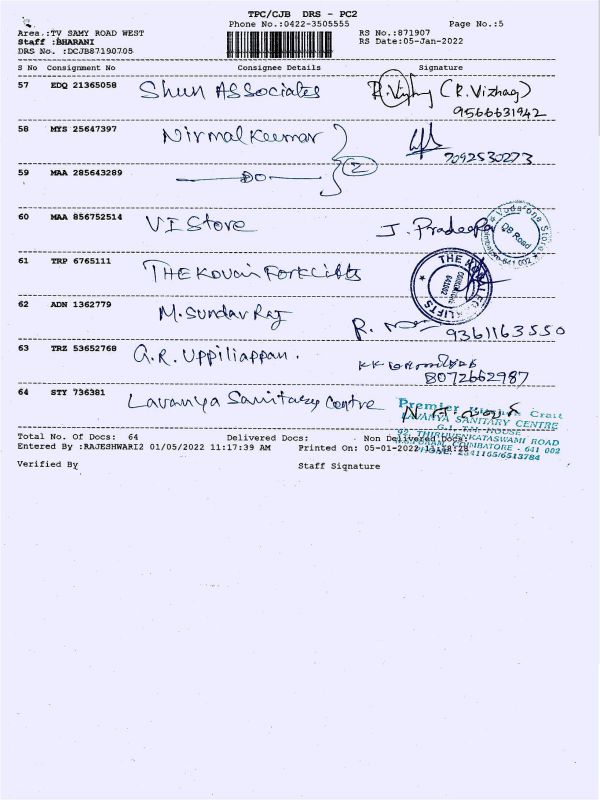 TPC/CJB DRS - PC2
Phone No.:0422-3505555 Page No.:5
Area :TV SAMY ROAD WEST RS No.:871907
Staff :BHARANI RS Date:05-Jan-2022
DRS No. :DCJB87190705
S No Consignment No Consignee Details Signature
57 EDQ 21365058 Shun Associates (R. Vizhag)
9566631942
58 MYS 25647397 Nirmal Kumar 7092530273
59 MAA 285643289 DO 2
60 MAA 856752514 VI Store J. Pradeep
Vodafone Store
DB Road
641 002
61 TRP 6765111 THE Kovai Forklifts
62 ADN 1362779 M. Sundar Raj R.
9361163550
63 TRZ 53652768 G.R. Uppiliappan.
8072662987
64 STY 736381 Lavanya Sanitary Centre
Premier
LAVANYA SANITARY CENTRE
92, THIRUVENKATASWAMI ROAD
COIMBATORE - 641 002
PHONE: 2541165/6513784
Total No. Of Docs: 64 Delivered Docs: Non Delivered Docs:
Entered By :RAJESHWARI2 01/05/2022 11:17:39 AM Printed On: 05-01-2022 11:58:28
Verified By Staff Signature